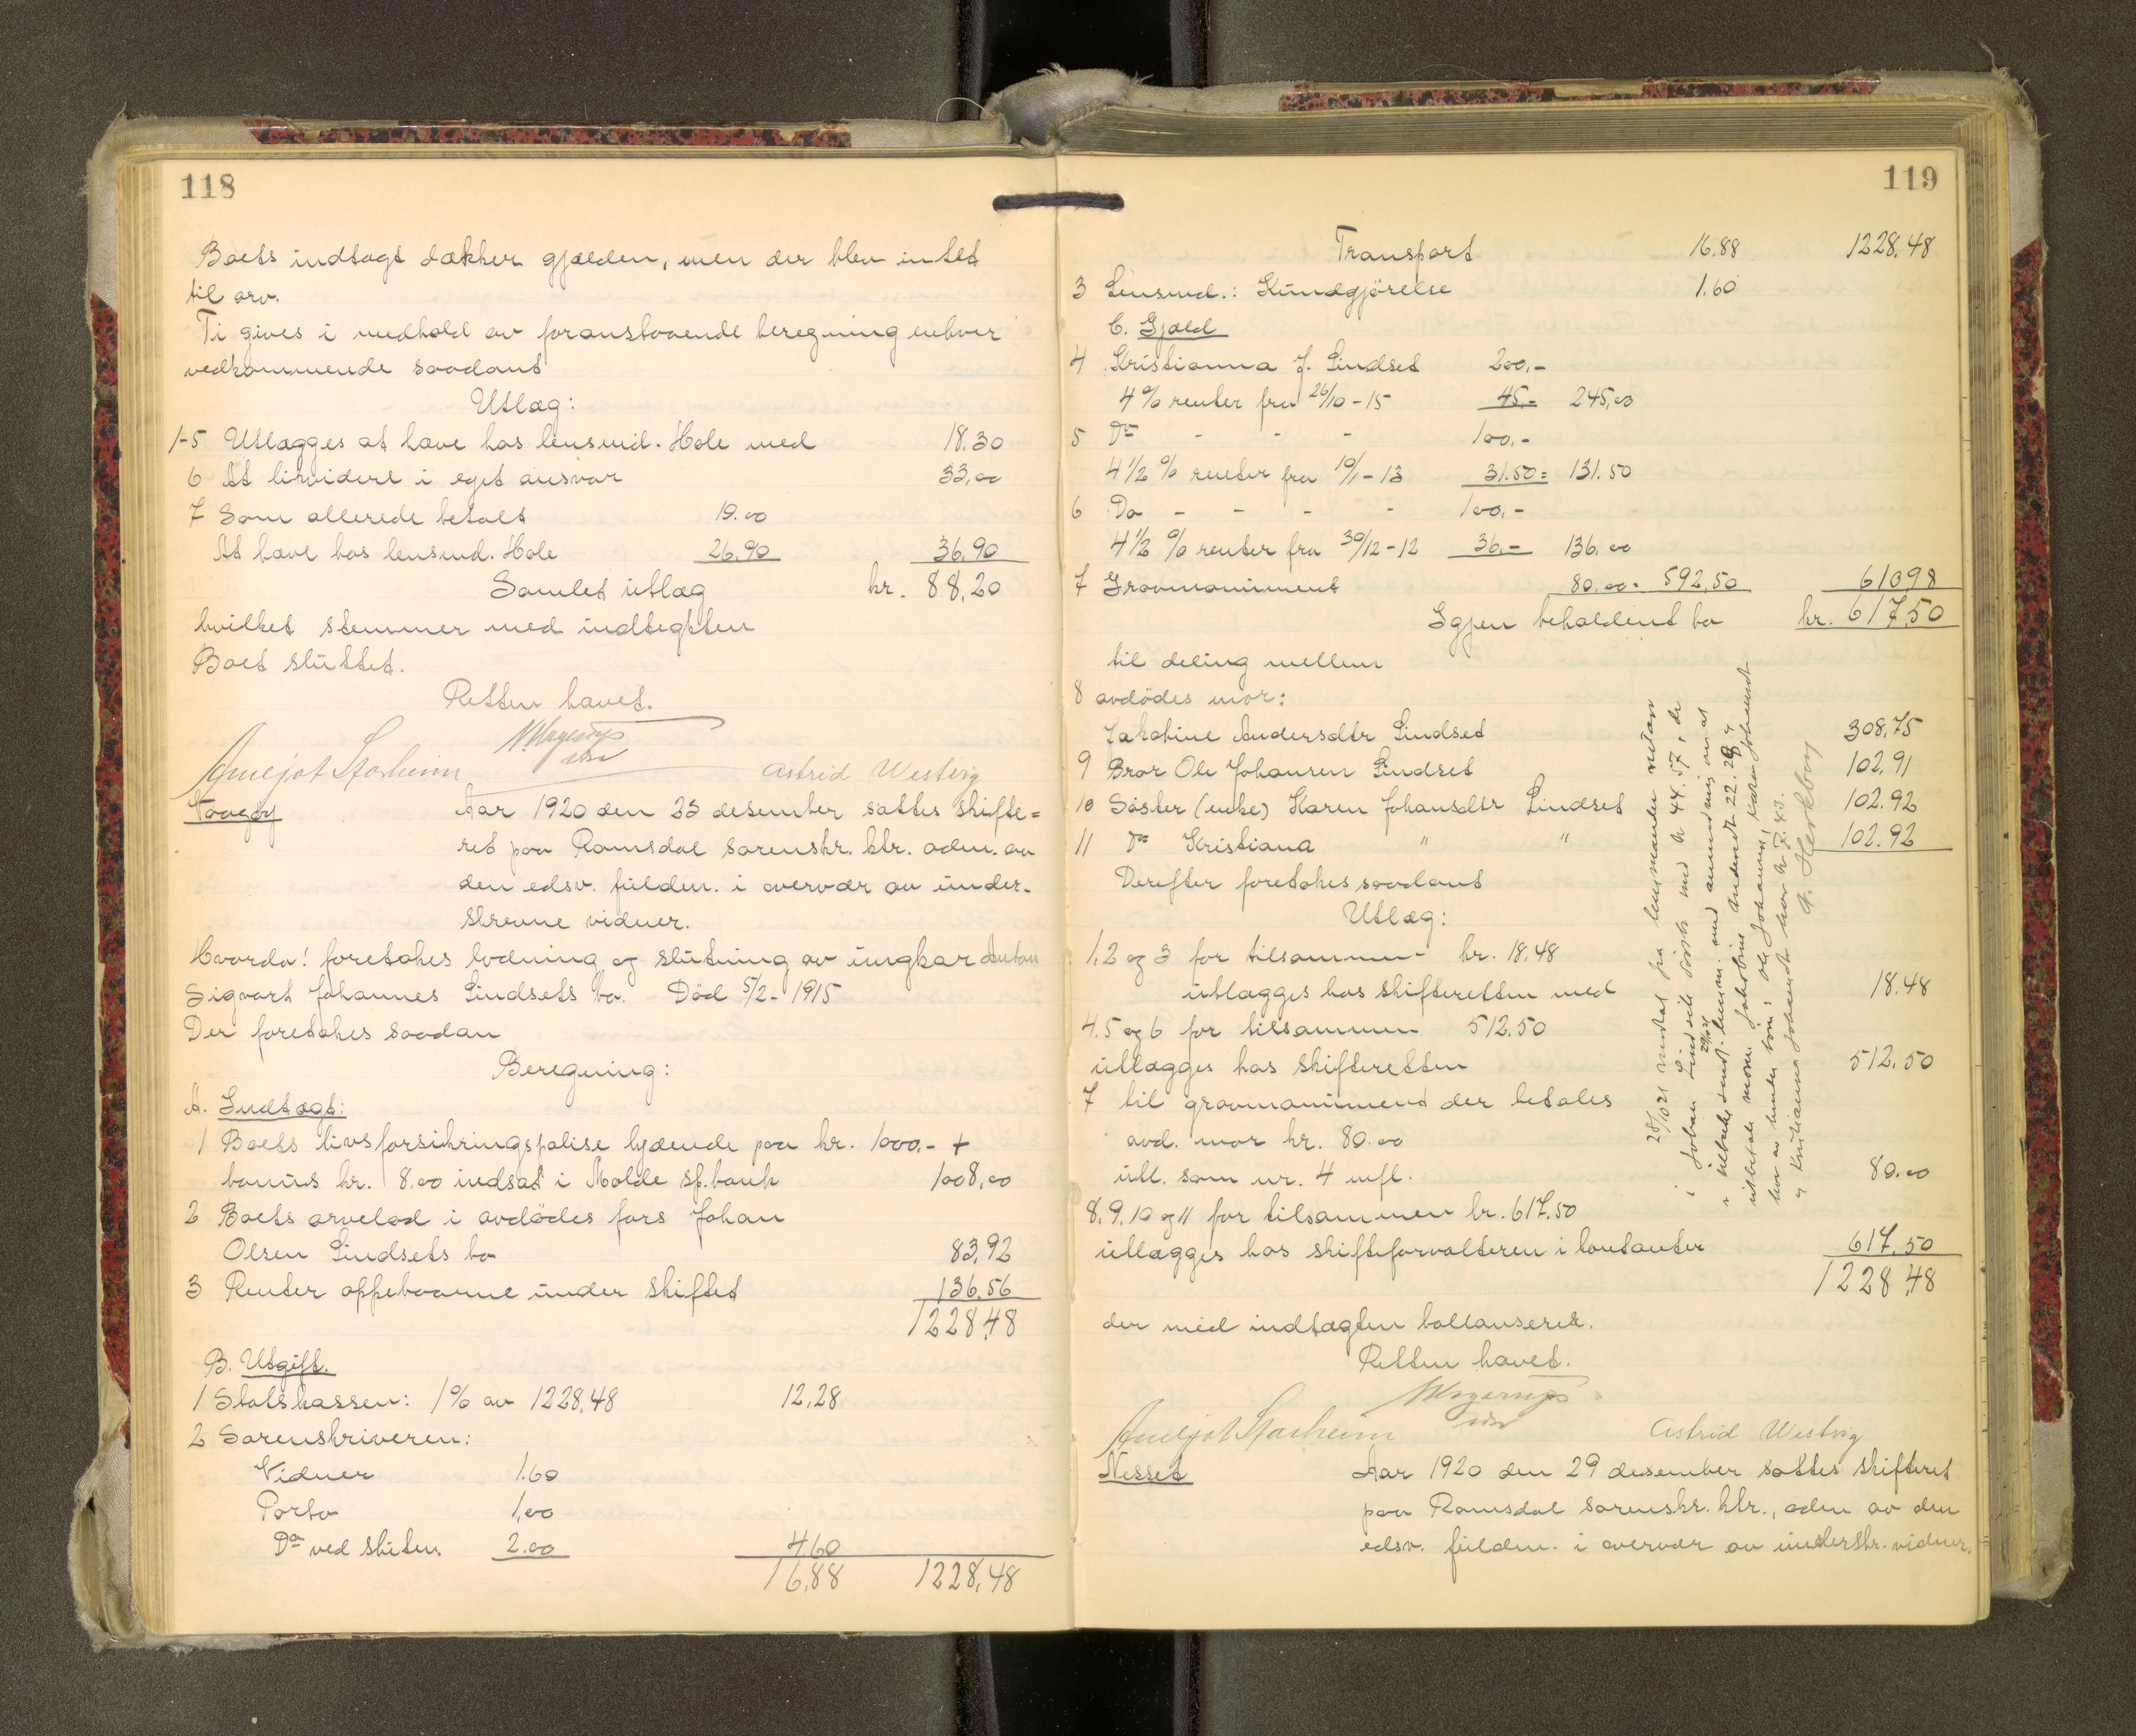 118
Boets indtægt dækker gjælden, men der blev intet
til arv.
Ti gives i medhold av foranstaaende beregning enhver
vedkommende saadant
Utlæg:
1-5 Utlægges at have hos lensmd. Hole med 18.30
6 At likvidere i eget ansvar 33,00
7 Som allerede betalt 10.00
At have hos lensmd. Hole 26,90 36,90
Samlet utlæg kr. 88,20
hvilket stemmer med indtægten
Boet sluttet.
Retten hævet.
Astrid Westvig
Vaagøy Aar 1920 den 23 desember sattes skifte=
ret paa Romsdal sorenskr. ktr. adm. av
den edsv. fuldm. i overvær av under-
skrevne vidner.
Hvorda! foretokes lodning og slutning av ungkar Anton
Sigvart Johannes Lindsets bo. Død 5/2- 1915
Der foretokes saadan
Beregning:
A. Indtægt:
1 Boets livsforsikringspolise lydende paa kr. 1000,- +
bonus kr. 8,00 indsat i Molde sp.bank 1008,00
2 Boets arvelod i avdødes fars Johan
Olsen Lindsets bo 83,92
3 Renter oppebaarne under skiftet 136.56
1228,48
B. Utgift.
1 Statskassen: 1% av 1228,48 12,28
2 Sorenskriveren:
Vidner 1.60
Porto 1,00
Do ved skiten 2.00 4.60
16,88 1228,48
119
Transport 16.88 1228,48
3 Lensmd.: Kundgjørelse 1.60
C. Gjæld
4 Kristianna J. Lindset 200,-
4% renter fra 26/10-15 45,= 245,00
5 Do - - - 100,-
4 1/2 % renter fra 10/1-13 31.50= 131.50
6 Do - - - - 100,-
4 1/2 % renter fra 30/12-12 36,- 136,00
7 Gravmonument 80,00= 592,50 61098
Igjen beholdent bo kr. 617,50
til deling mellem
8 avdødes mor:
Jakobine Andersdtr Lindset 308,75
9 Bror Ole Johansen Lindset 102,91
10 Søster (enke) Karen Johansdtr Lindset 102.92
11 Do Kristiana " " 102.92
Derefter foretokes saadant
Utlæg:
1,2 og 3 for tilsammen kr. 18.48
utlægges hos skifteretten med 18.48
4.5 og 6 for tilsammen 512.50
utlægges hos skifteretten 512,50
7 til gravmonument der betales
avd. mor kr. 80.00
utl. som nr. 4 mfl. 80.00
8,9,10 og 11 for tilsammen kr. 617.50
utlægges hos skifteforvalteren i kontanter 617,50
1228,48
der med indtægten ballanserer.
Retten hævet.
Astrid Westvig
Nesset Aar 1920 den 29 desember sattes skifteret
paa Romsdal sorenskr. ktr., adm av den
edsv. fuldm. i overvær av underskr. vidner.